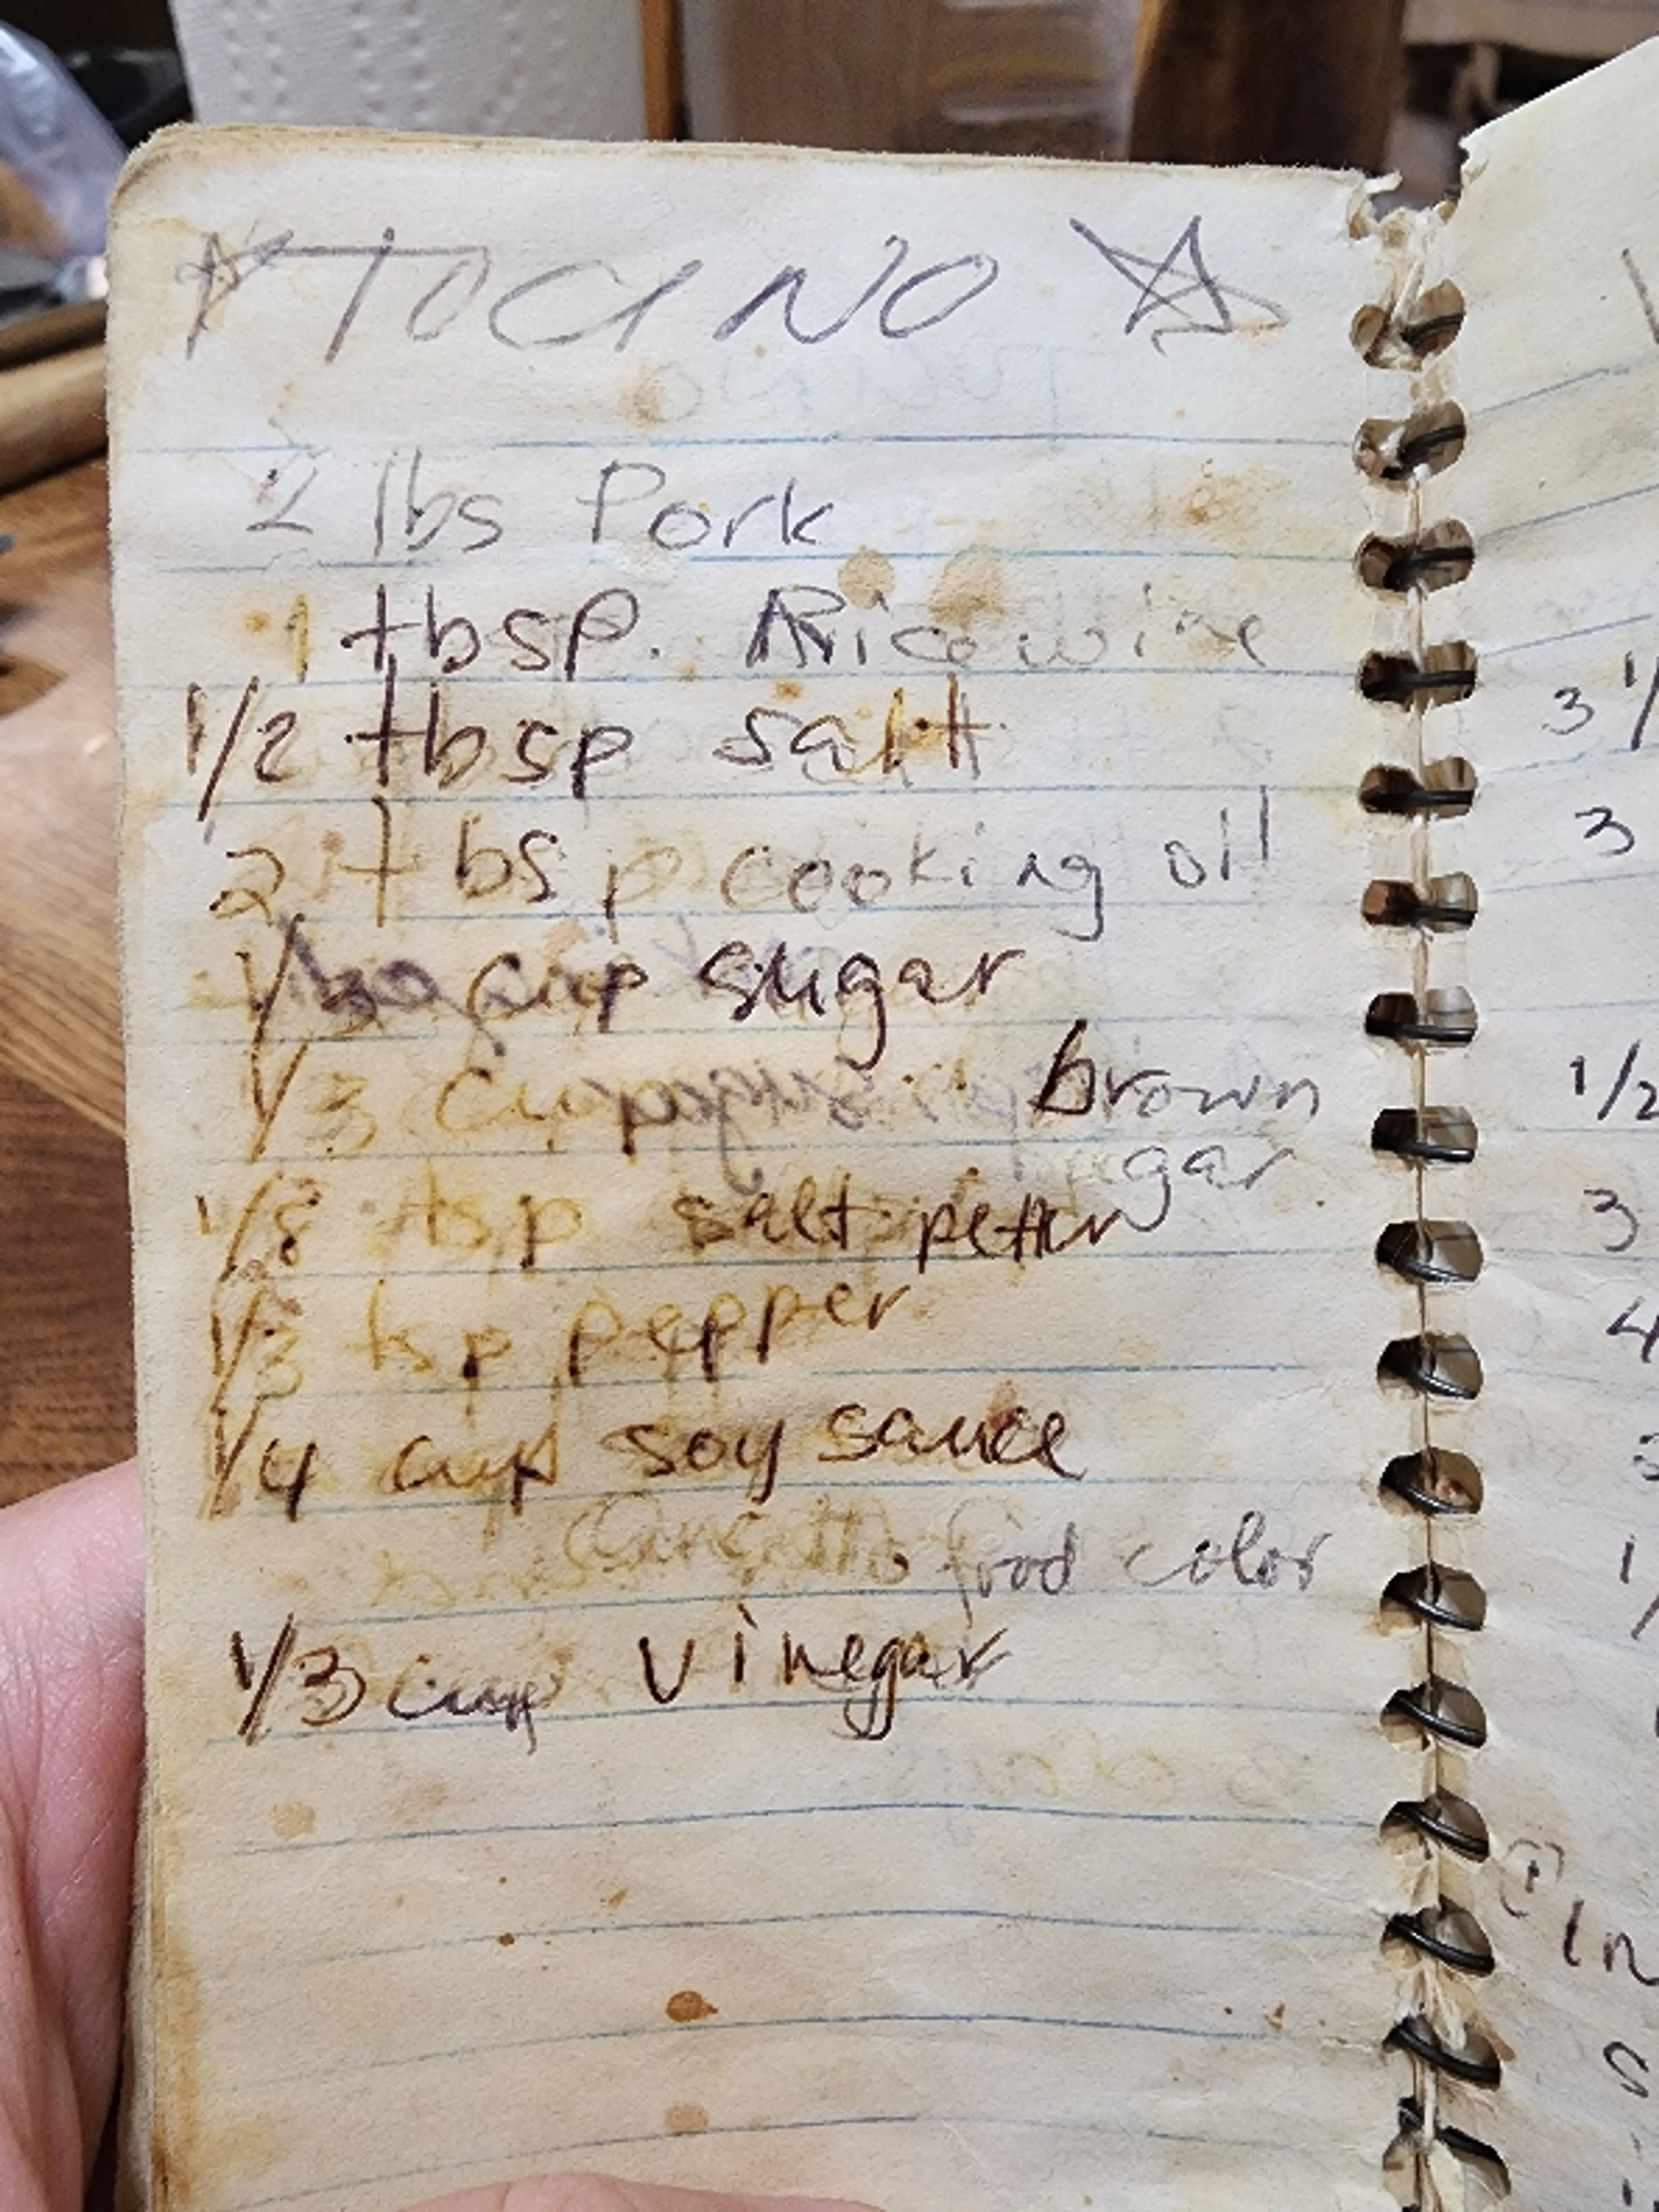 TOCINO
2 lbs Pork
1 tbsp. Rice wine
1/2 tbsp salt
2 tbsp cooking oil
cup sugar
1/3 cup brown
sugar
1/8 tsp salt petter
1/3 tsp pepper
1/4 cup soy sauce
food color
1/3 cup vinegar
3 1/
3
1/2
3
4
In